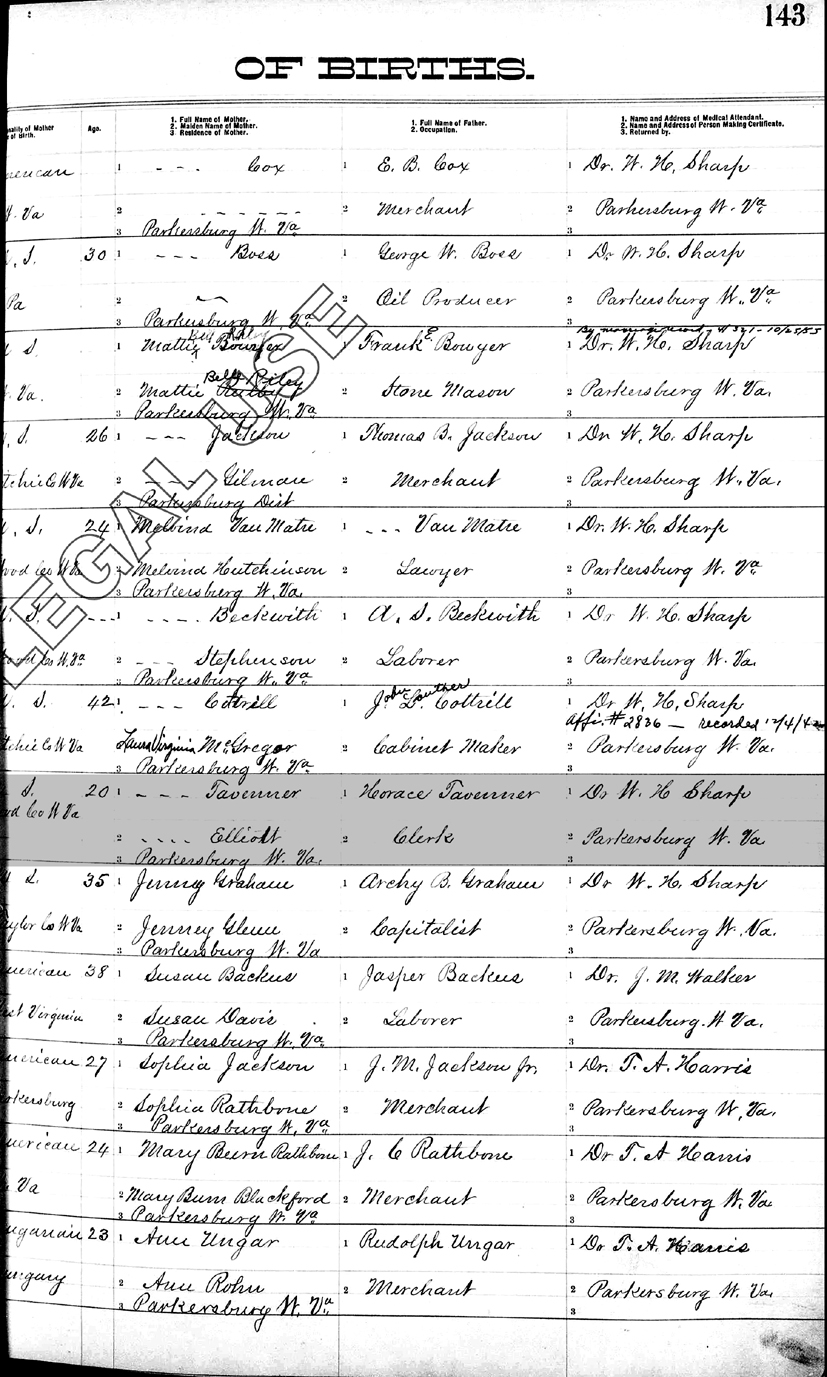 143
OF BIRTHS.
Age.
1. Full Name of Mother.
2. Maiden Name of Mother.
3. Residence of Mother.
1. Full Name of Father.
2. Occupation.
1. Name and Address of Medical Attendant.
2. Name and Address of Person Making Certificate.
3. Returned by.
1 - - - Cox 1 E. B. Cox 1 Dr. W. H. Sharp
Va 2 - - - - - - 2 Merchant 2 Parkersburg W. Va
3 Parkersburg W. Va 3
S. 30 1 - - - Boss 1 George W. Boss 1 Dr W. H. Sharp
Pa 2 2 Oil Producer 2 Parkersburg W. Va
3 Parkersburg W. Va 3
S. 1 Mattie Bowyer 1 Frank E. Bowyer 1 Dr. W. H. Sharp
Belle Riley
Va. 2 Mattie 2 Stone Mason 2 Parkersburg W. Va.
3 Parkersburg W. Va 3
S. 26 1 - - - Jackson 1 Thomas B. Jackson 1 Dr W. H. Sharp
tchie Co W Va 2 - - - Gilman 2 Merchant 2 Parkersburg W. Va.
3 Parkersburg Dist 3
S. 24 1 Melvind Van Matre 1 - - - Van Matre 1 Dr. W. H. Sharp
ood Co W Va 2 Melvind Hutchinson 2 Lawyer 2 Parkersburg W. Va
3 Parkersburg W. Va. 3
S. --- 1 - - - - Beckwith 1 A. S. Beckwith 1 Dr W. H. Sharp
ood Co W. Va 2 - - - Stephenson 2 Laborer 2 Parkersburg W. Va.
3 Parkersburg W. Va 3
S. 42 1 - - - Cottrill 1 John Louther Cottrill 1 Dr W. H. Sharp
Affi. # 2836 — recorded 12/4/4
tchie Co W Va 2 Laura Virginia McGregor 2 Cabinet Maker 2 Parkersburg W Va.
3 Parkersburg W. Va 3
S. 20 1 - - - Tavenner 1 Horace Tavenner 1 Dr W. H Sharp
od Co W Va
2 - - - - Elliott 2 Clerk 2 Parkersburg W. Va
3 Parkersburg W. Va. 3
S. 35 1 Jenney Graham 1 Archy B. Graham 1 Dr W. H. Sharp
aylor Co W Va 2 Jenney Glenn 2 Capitalist 2 Parkersburg W. Va.
3 Parkersburg W. Va 3
merican 38 1 Susan Backus 1 Jasper Backus 1 Dr. J. M. Walker
est Virginia 2 Susan Davis 2 Laborer 2 Parkersburg. W Va.
3 Parkersburg W. Va 3
merican 27 1 Sophia Jackson 1 J. M. Jackson Jr. 1 Dr. T. A. Harris
rkersburg 2 Sophia Rathbone 2 Merchant 2 Parkersburg W. Va.
3 Parkersburg W. Va 3
merican 24 1 Mary Burn Rathbone 1 J. C Rathbone 1 Dr T. A Harris
Va 2 Mary Burn Blackford 2 Merchant 2 Parkersburg W. Va
3 Parkersburg W. Va 3
ungarian 23 1 Ann Ungar 1 Rudolph Ungar 1 Dr T. A. Harris
ungary 2 Ann Rohn 2 Merchant 2 Parkersburg W. Va.
3 Parkersburg W. Va 3
LEGAL USE